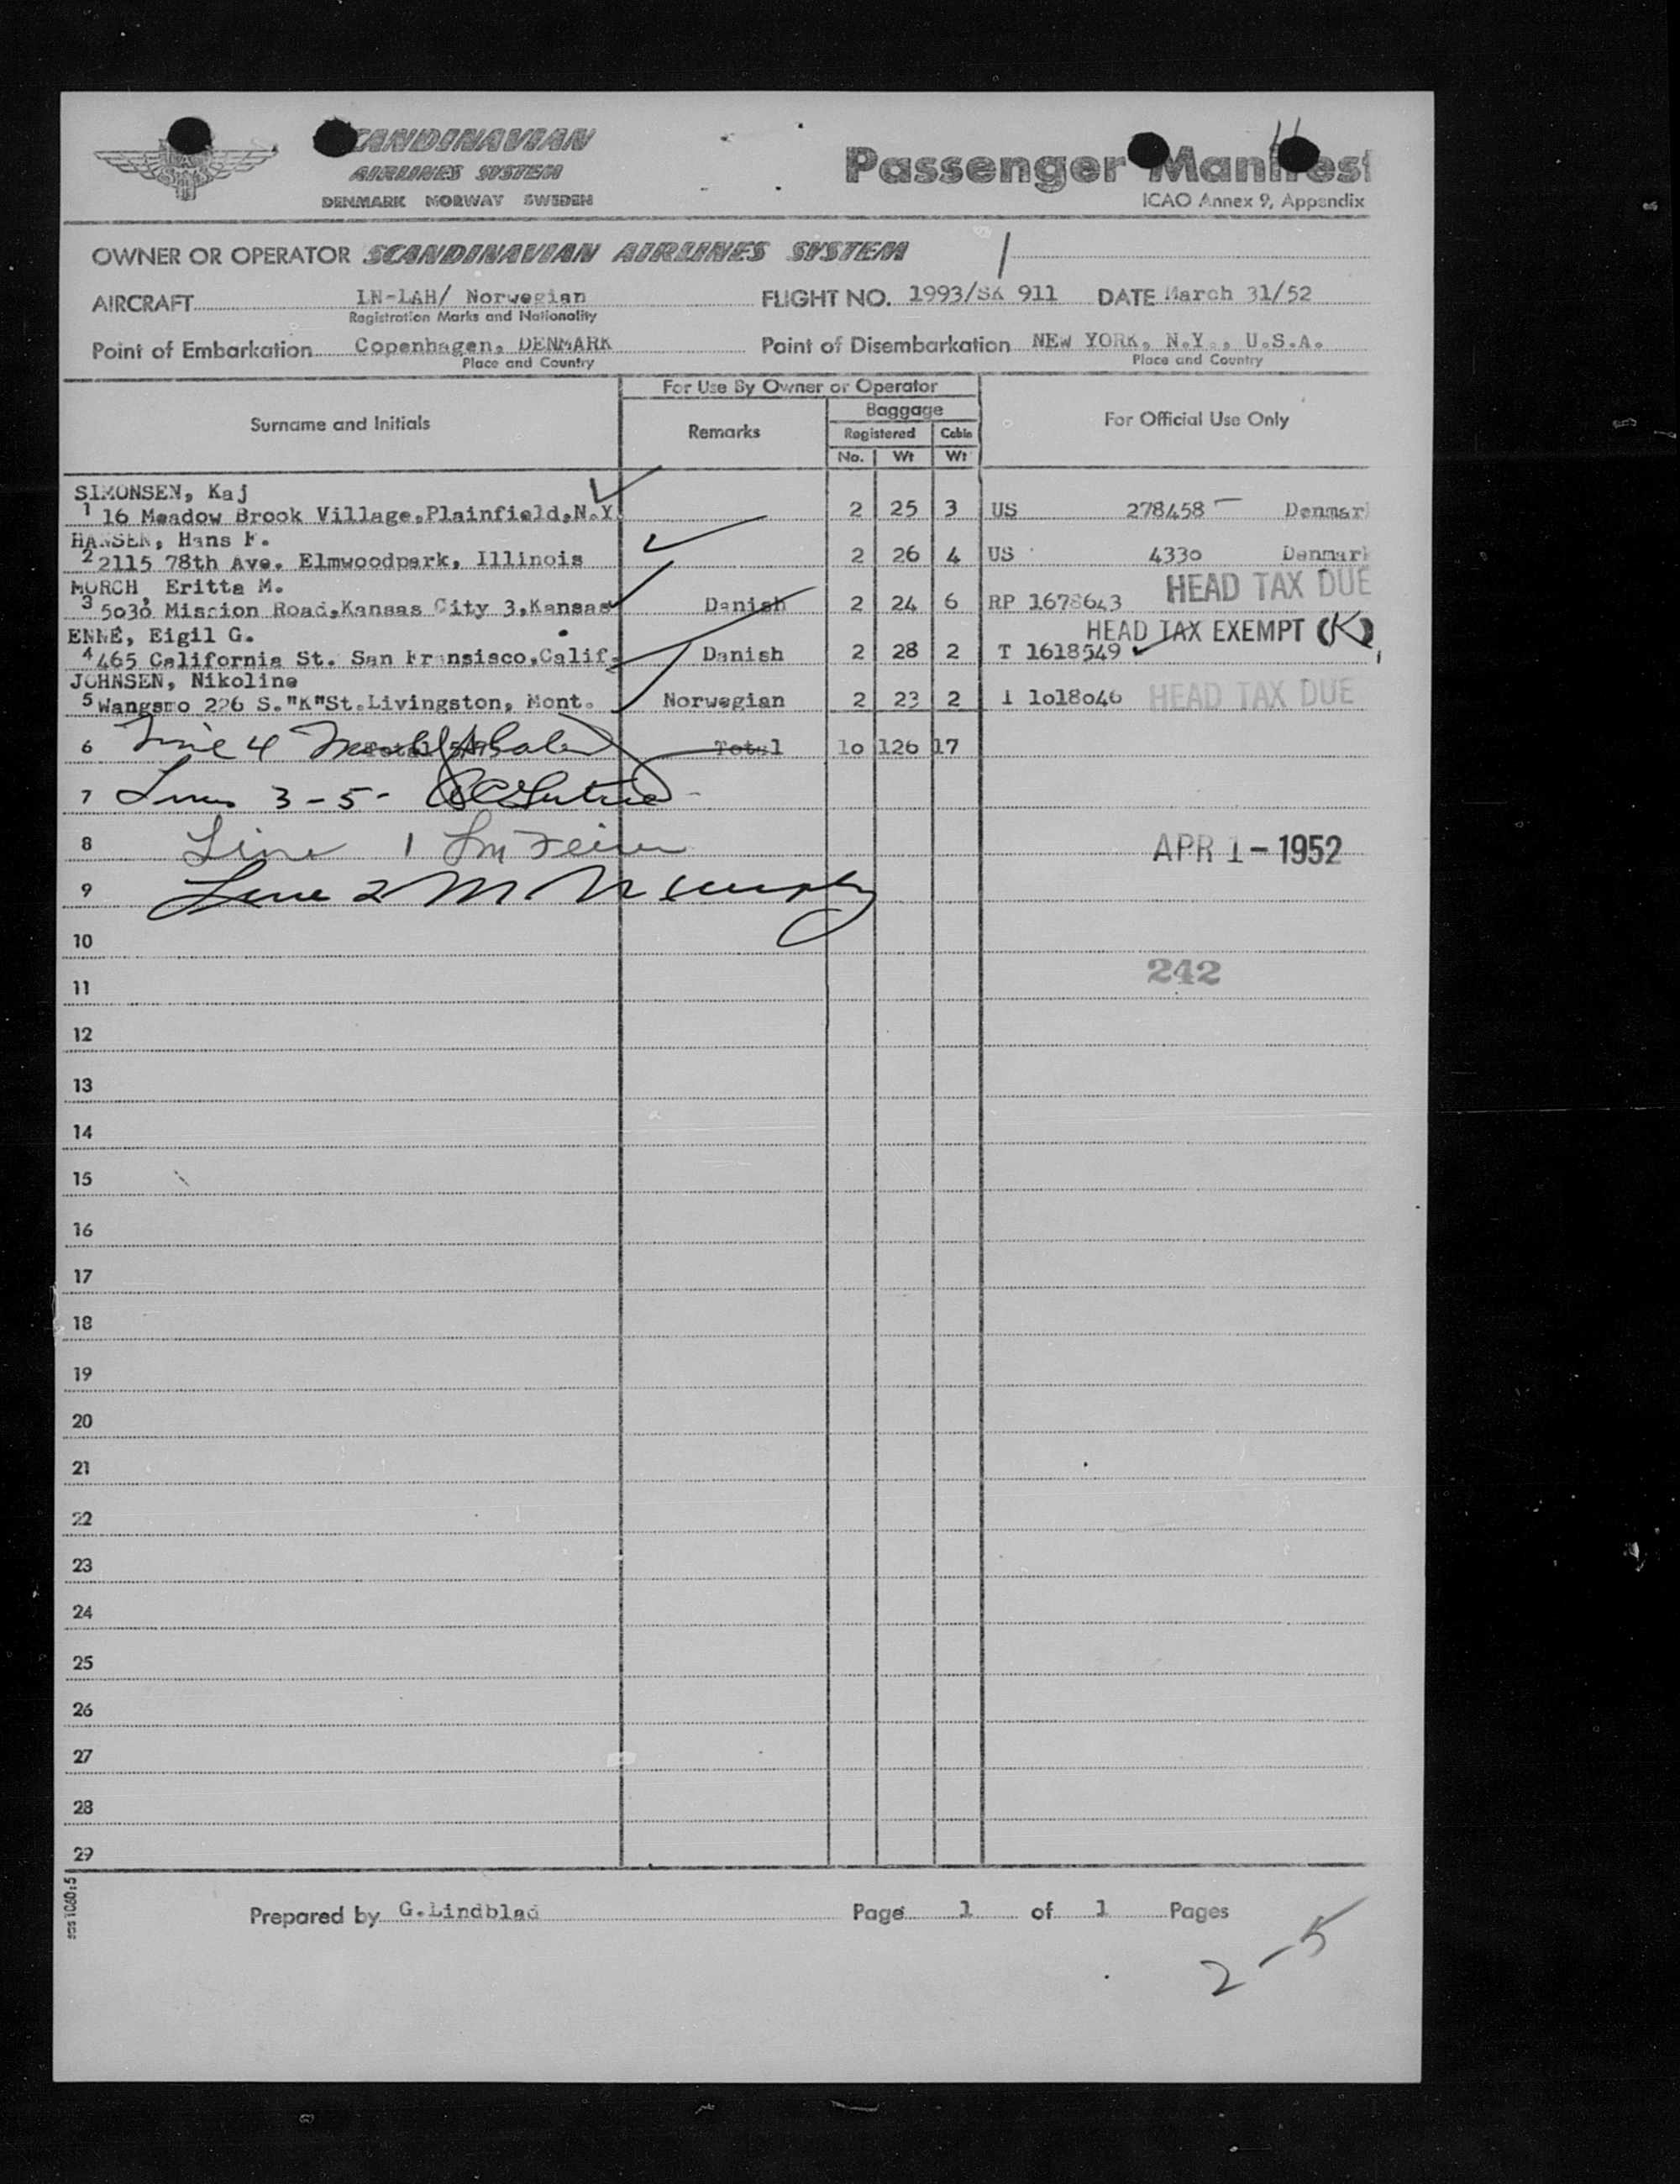 SCANDINAVIAN
AIRLINES SYSTEM
DENMARK NORWAY SWEDEN
Passenger Manifest
ICAO Annex 9, Appendix
OWNER OR OPERATOR SCANDINAVIAN AIRLINES SYSTEM
AIRCRAFT LN-LAH/ Norwegian FLIGHT NO. 1993/SK 911 DATE March 31/52
Registration Marks and Nationality
Point of Embarkation Copenhagen, DENMARK Point of Disembarkation NEW YORK, N.Y., U.S.A.
Place and Country Place and Country
For Use By Owner or Operator
Surname and Initials Remarks Baggage For Official Use Only
Registered Cabin
No. Wt Wt
SIMONSEN, Kaj
1 16 Meadow Brook Village,Plainfield,N.Y. 2 25 3 US 278458 Denmar
HANSEN, Hans F.
2 2115 78th Ave. Elmwoodpark, Illinois 2 26 4 US 4330 Denmark
MORCH, Eritta M. HEAD TAX DUE
3 5030 Mission Road,Kansas City 3,Kansas Danish 2 24 6 RP 1678643
ENNÉ, Eigil G. HEAD TAX EXEMPT (K)
4 465 California St. San Fransisco,Calif. Danish 2 28 2 T 1618549
JOHNSEN, Nikoline
5 Wangsmo 226 S."K"St.Livingston, Mont. Norwegian 2 23 2 I 1018046 HEAD TAX DUE
6 Line 4 Total 10 126 17
7 Lines 3-5-
8 Line 1 APR 1-1952
9 Line 2 M
10
11 242
12
13
14
15
16
17
18
19
20
21
22
23
24
25
26
27
28
29
sas 1060:5
Prepared by G.Lindblad Page 1 of 1 Pages
2-5